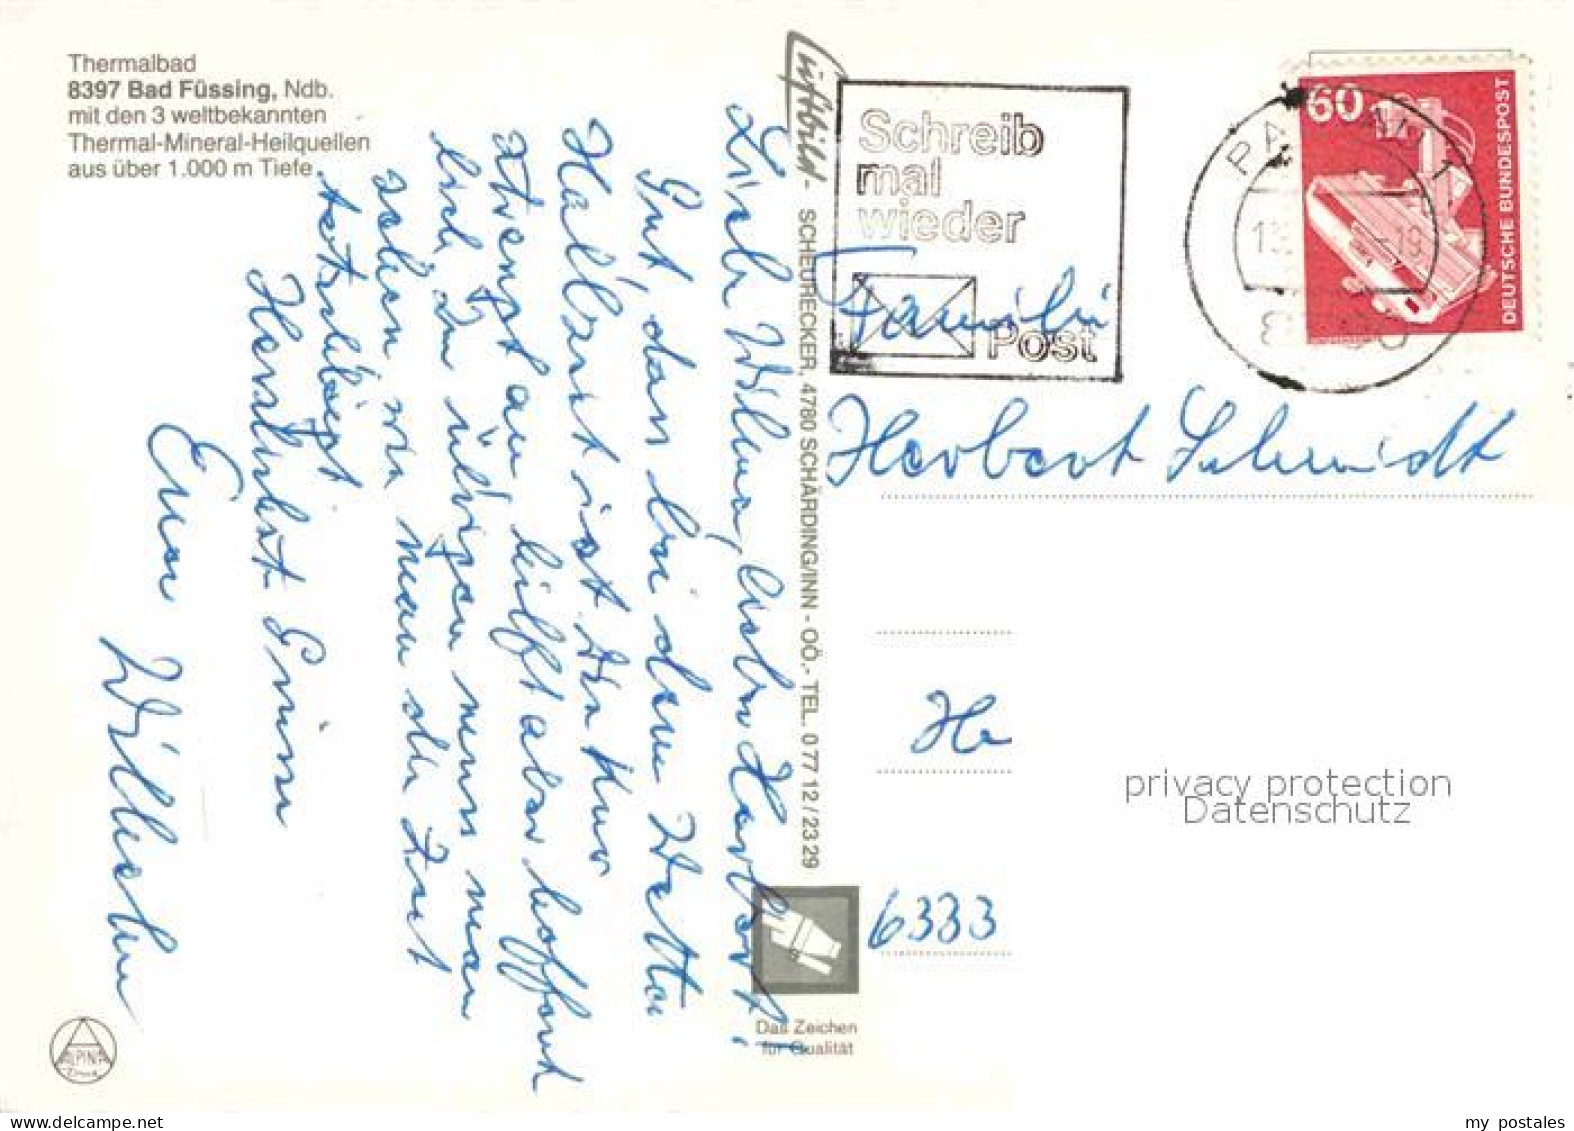 Thermalbad
8397 Bad Füssing, Ndb.
mit den 3 weltbekannten
Thermal-Mineral-Heilquellen
aus über 1.000 m Tiefe.
Liebe Wilma, lieber Herbert!
Gut, dass bei dem Wetter
Halbzeit ist. Die Kur
strengt an, hilft aber hoffent
lich. Im übrigen muss man
sehen, wie man die Zeit
Herzlichst Grüße
Eure
luftbild - SCHEURECKER, 4780 SCHÄRDING/INN - OÖ.- TEL. 0 77 12 / 23 29
Das Zeichen
für Qualität
ALPINA
Druck
Schreib
mal
wieder
Post
60
DEUTSCHE BUNDESPOST
Familie
Herbert Schmidt
He
6333
privacy protection
Datenschutz
my postales